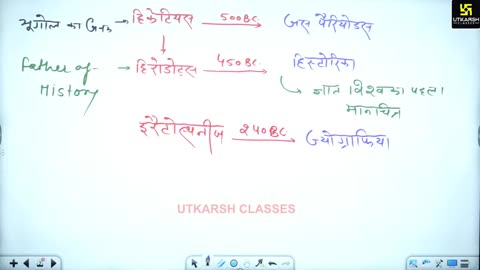 UTKARSH
भूगोल का जनक → हिकेटियस 500BC → जस पैरियोडस
Father of History → हिरोडोट्स 450BC → हिस्टोरिका
ज्ञात विश्व का पहला मानचित्र
इरैटोस्थनीज 240BC → ज्योग्राफिया
UTKARSH CLASSES